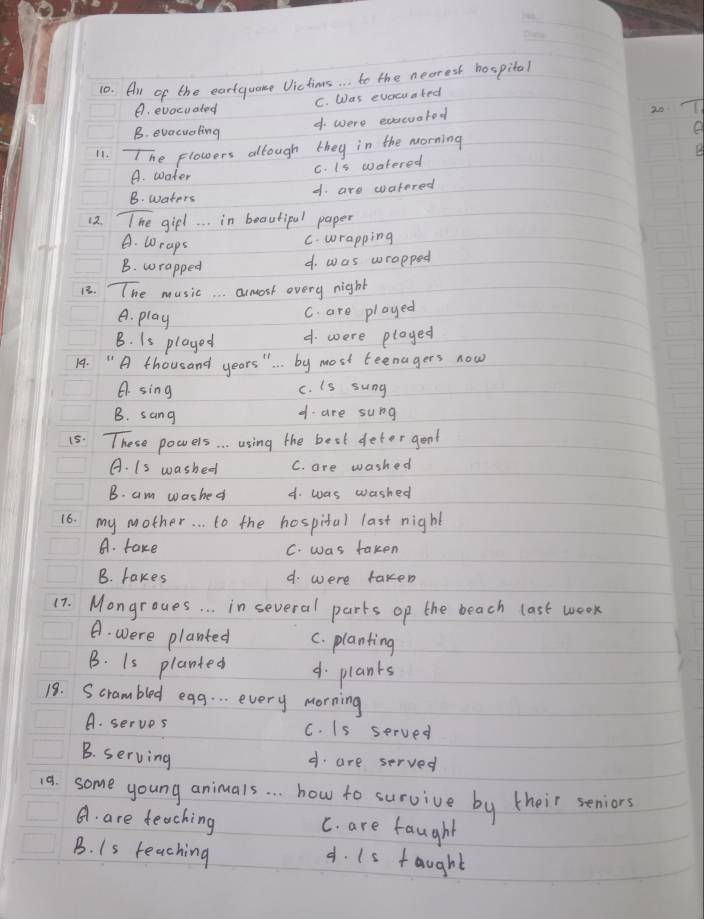 10. All of the eartquake Victims ... to the nearest hospital
A. evacuated C. Was evacuated
B. evacuating d. were evacuated
11. The Flowers altough they in the morning
A. water C. Is watered
B. waters d. are watered
12. The gift ... in beautiful paper
A. Wraps C. wrapping
B. wrapped d. was wrapped
13. The music ... almost every night
A. play C. are played
B. Is played d. were played
14. "A thousand years"... by most teenagers now
A. sing C. Is sung
B. sang d. are sung
15. These powels ... using the best detergent
A. Is washed C. are washed
B. am washed d. was washed
16. my mother ... to the hospital last night
A. take C. was taken
B. takes d. were taken
17. Mongroves ... in several parts of the beach last week
A. were planted C. planting
B. Is planted d. plants
18. Scrambled egg ... every morning
A. serves C. Is served
B. serving d. are served
19. some young animals ... how to survive by their seniors
A. are teaching C. are taught
B. Is teaching d. Is taught
20.